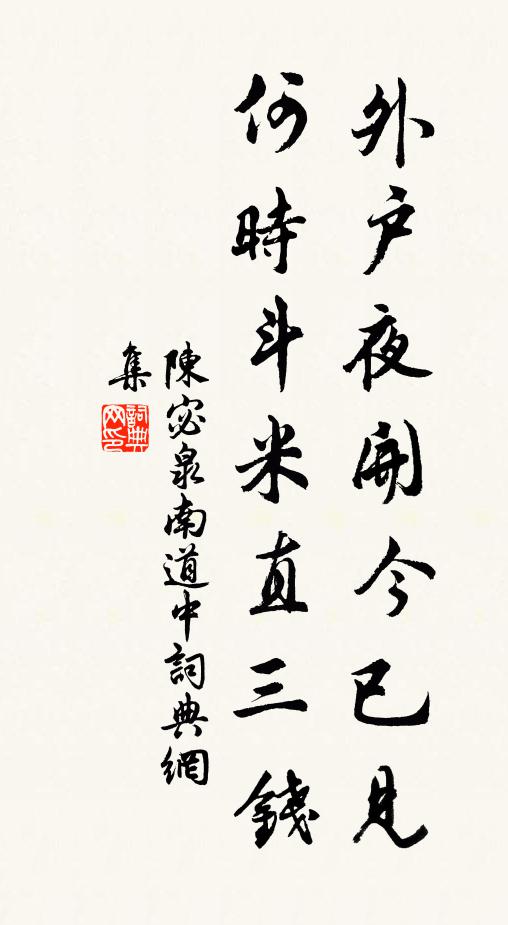 外戶夜開今已見
何時斗米直三錢
陳宓泉南道中詞典網
集
詞典網印